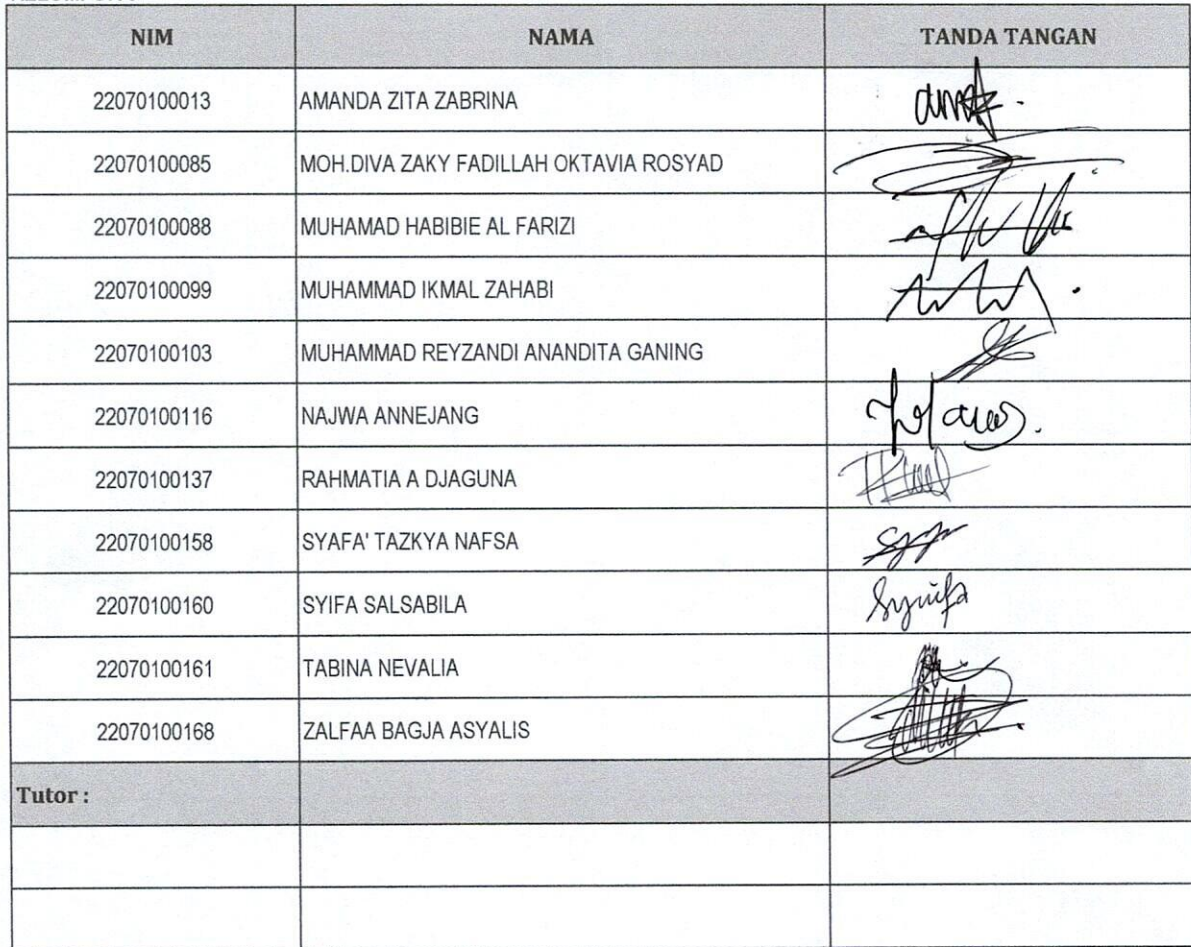 NIM NAMA TANDA TANGAN
22070100013 AMANDA ZITA ZABRINA
22070100085 MOH.DIVA ZAKY FADILLAH OKTAVIA ROSYAD
22070100088 MUHAMAD HABIBIE AL FARIZI
22070100099 MUHAMMAD IKMAL ZAHABI
22070100103 MUHAMMAD REYZANDI ANANDITA GANING
22070100116 NAJWA ANNEJANG
22070100137 RAHMATIA A DJAGUNA
22070100158 SYAFA' TAZKYA NAFSA
22070100160 SYIFA SALSABILA
22070100161 TABINA NEVALIA
22070100168 ZALFAA BAGJA ASYALIS
Tutor :